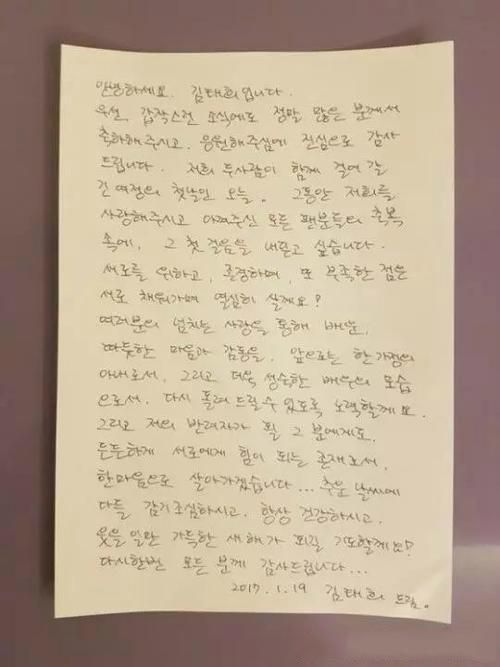 안녕하세요. 김태희입니다.
우선, 갑작스런 소식에도 정말 많은 분께서
축하해주시고, 응원해주심에 진심으로 감사
드립니다. 저희 두사람이 함께 걸어 갈
긴 여정의 첫날인 오늘. 그동안 저희를
사랑해주시고 아껴주신 모든 팬분들의 축복
속에, 그 첫 걸음을 내딛고 싶습니다.
서로를 위하고, 존경하며, 또 부족한 점은
서로 채워가며 열심히 살께요!
여러분의 넘치는 사랑을 통해 배운,
따듯한 마음과 감동을, 앞으로는 한 가정의
아내로서, 그리고 더욱 성숙한 배우의 모습
으로서, 다시 돌려 드릴 수 있도록 노력할께요.
그리고 저의 반려자가 될 그 분에게도,
든든하게 서로에게 힘이 되는 존재로서,
한마음으로 살아가겠습니다... 추운 날씨에
다들 감기조심하시고, 항상 건강하시고,
웃을 일만 가득한 새해가 되길 기도할께요!
다시한번 모든 분께 감사드립니다...
2017.1.19 김태희 드림.